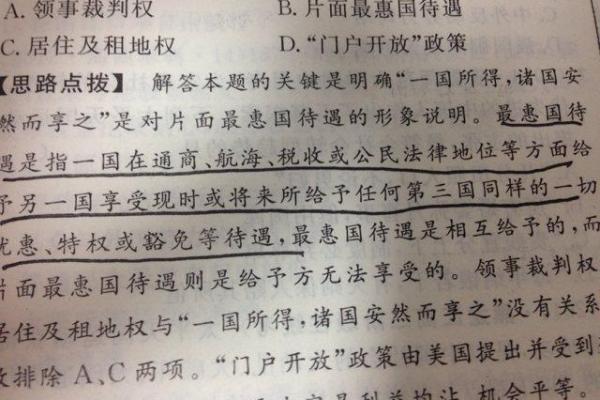 A. 领事裁判权 B. 片面最惠国待遇
C. 居住及租地权 D. “门户开放”政策
【思路点拨】 解答本题的关键是明确“一国所得,诸国安
然而享之”是对片面最惠国待遇的形象说明。最惠国待
遇是指一国在通商、航海、税收或公民法律地位等方面给
予另一国享受现时或将来所给予任何第三国同样的一切
优惠、特权或豁免等待遇,最惠国待遇是相互给予的,而
片面最惠国待遇则是给予方无法享受的。领事裁判权
居住及租地权与“一国所得,诸国安然而享之”没有关系
故排除 A、C 两项。“门户开放”政策由美国提出并受到
利益均沾、机会平等。